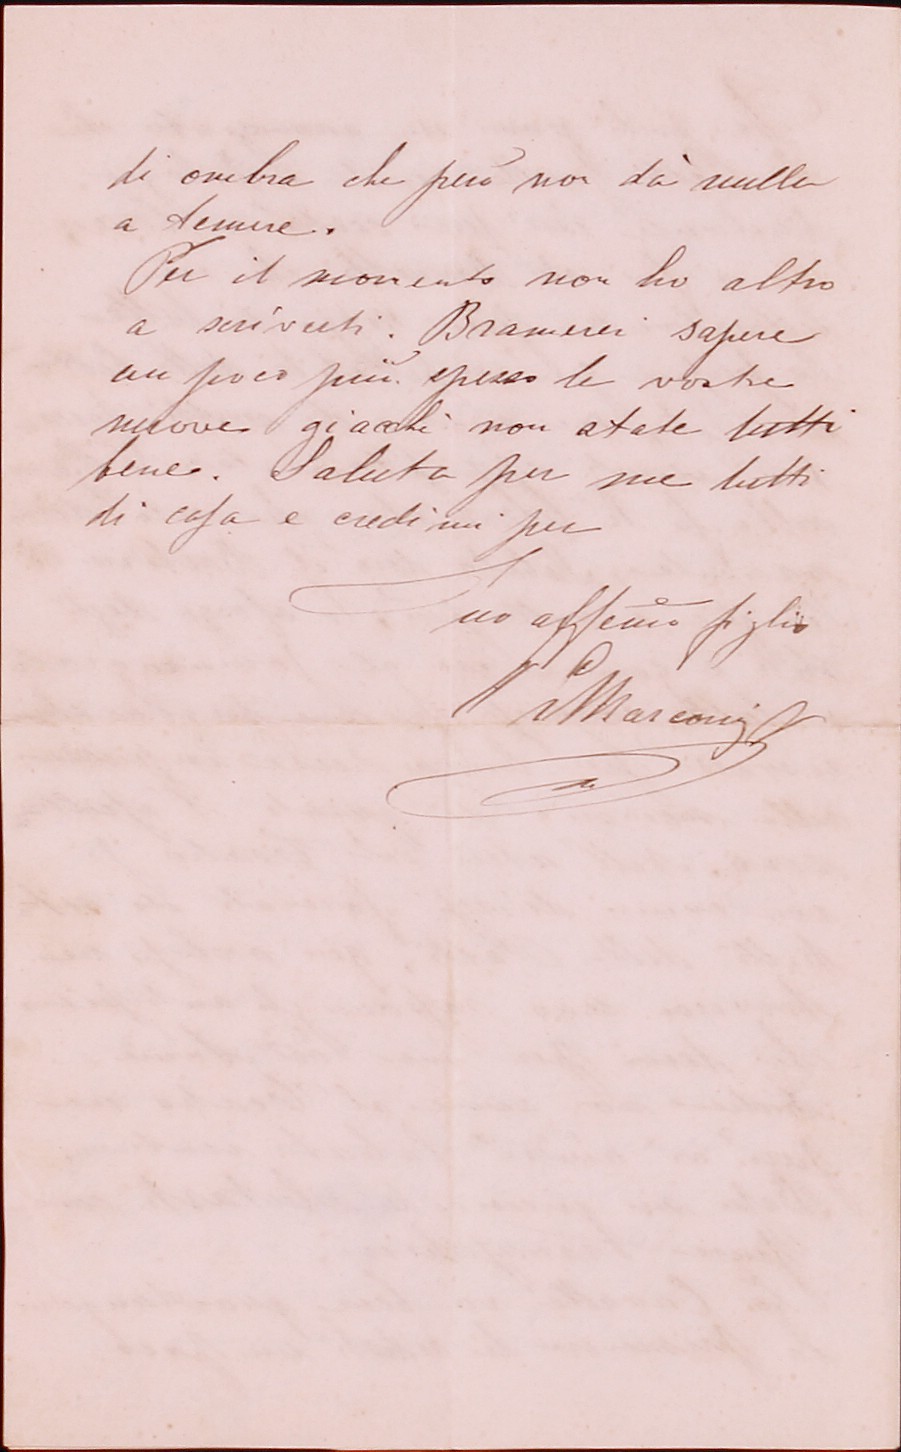 di ombra che però non dà nulla
a temere.
Per il momento non ho altro
a scriverti. Bramerei sapere
un poco più spesso le vostre
nuove giacchè non state tutti
bene. Saluta per me tutti
di casa e credimi per
Tuo affemo figlio
Marconi